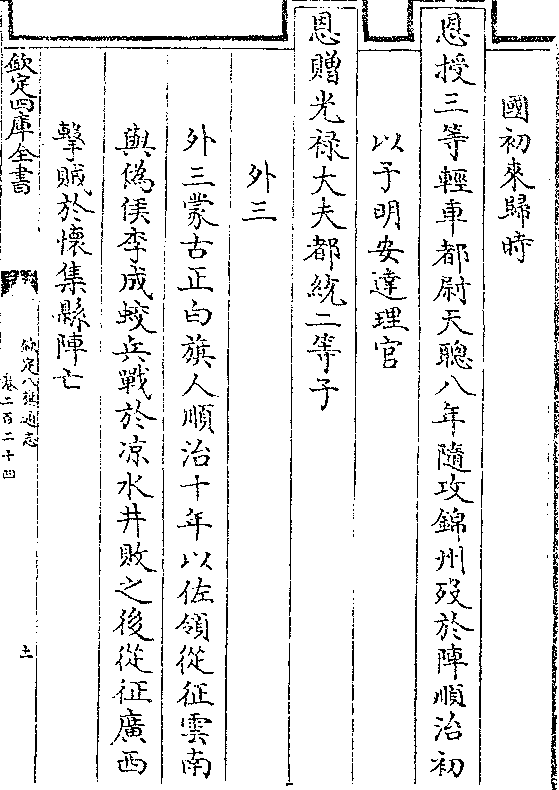 國初來歸時
恩授三等輕車都尉天聰八年隨攻錦州歿於陣順治初
以子明安達理官
恩贈光禄大夫都統二等子
外三
外三蒙古正白旗人順治十年以佐領從征雲南
與偽侯李成蛟兵戰於凉水井敗之後從征廣西
擊賊於懷集縣陣亡
欽定四庫全書
欽定八旗通志
卷二百二十四
土